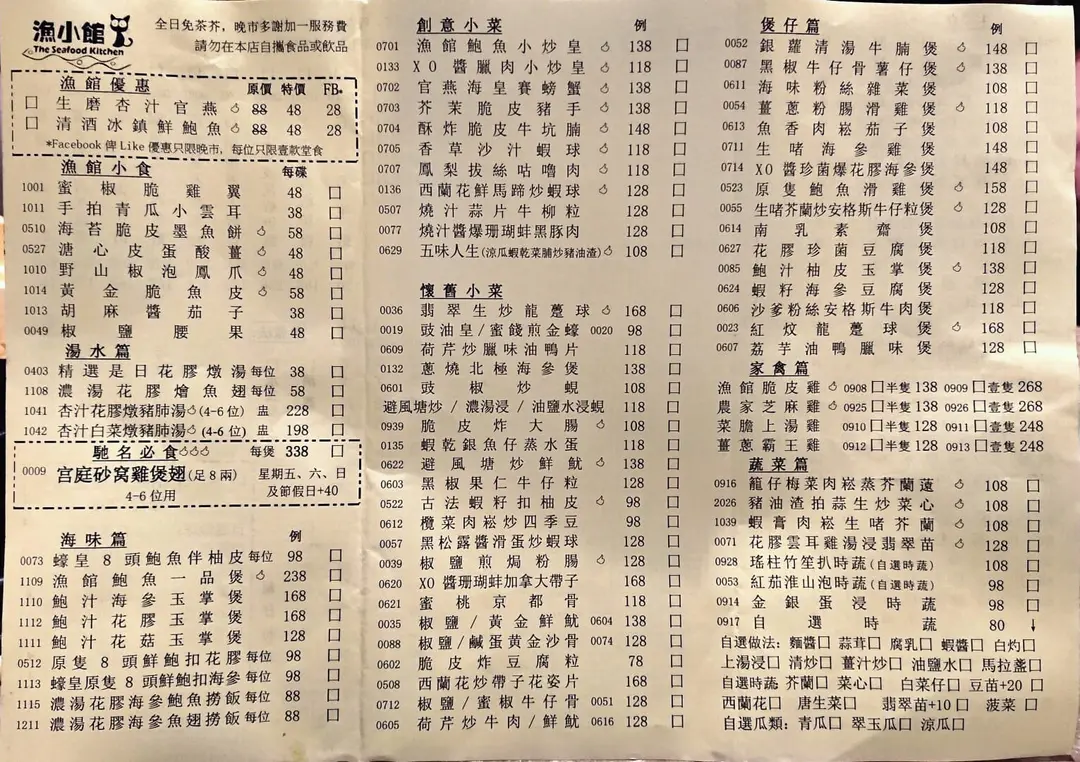 漁小館
The Seafood Kitchen
全日免茶芥，晚市多謝加一服務費
請勿在本店自攜食品或飲品
漁館優惠 原價 特價 FB*
生磨杏汁官燕 88 48 28
清酒冰鎮鮮鮑魚 88 48 28
*Facebook 俾 Like 優惠只限晚市，每位只限壹款堂食
漁館小食 每碟
1001 蜜椒脆雞翼 48
1011 手拍青瓜小雲耳 38
0510 海苔脆皮墨魚餅 58
0527 溏心皮蛋酸薑 48
1010 野山椒泡鳳爪 48
1014 黃金脆魚皮 58
1013 胡麻醬茄子 38
0049 椒鹽腰果 48
湯水篇
0403 精選是日花膠燉湯 每位 38
1108 濃湯花膠燴魚翅 每位 58
1041 杏汁花膠燉豬肺湯 (4-6 位) 盅 228
1042 杏汁白菜燉豬肺湯 (4-6 位) 盅 198
馳名必食 每煲 338
0009 宮庭砂窩雞煲翅(足 8 兩) 星期五、六、日
4-6 位用 及節假日+40
海味篇 例
0073 蠔皇 8 頭鮑魚伴柚皮 每位 98
1109 漁館鮑魚一品煲 238
1110 鮑汁海參玉掌煲 168
1112 鮑汁花膠玉掌煲 168
1111 鮑汁花菇玉掌煲 128
0512 原隻 8 頭鮮鮑扣花膠 每位 98
1113 蠔皇原隻 8 頭鮮鮑扣海參 每位 98
1115 濃湯花膠海參鮑魚撈飯 每位 88
1211 濃湯花膠海參魚翅撈飯 每位 88
創意小菜 例
0701 漁館鮑魚小炒皇 138
0133 XO 醬臘肉小炒皇 118
0702 官燕海皇賽螃蟹 138
0703 芥茉脆皮豬手 138
0704 酥炸脆皮牛坑腩 148
0705 香草沙汁蝦球 118
0707 鳳梨拔絲咕嚕肉 118
0136 西蘭花鮮馬蹄炒蝦球 128
0507 燒汁蒜片牛柳粒 128
0077 燒汁醬爆珊瑚蚌黑豚肉 128
0629 五味人生(涼瓜蝦乾菜脯炒豬油渣) 108
懷舊小菜
0036 翡翠生炒龍躉球 168
0019 豉油皇/蜜餞煎金蠔 0020 98
0609 荷芹炒臘味油鴨片 118
0132 蔥燒北極海參煲 168
0601 豉椒炒蜆 108
避風塘炒/濃湯浸/油鹽水浸蜆 118
0939 脆皮炸大腸 108
0135 蝦乾銀魚仔蒸水蛋 118
0622 避風塘炒鮮魷 138
0603 黑椒果仁牛仔粒 128
0522 古法蝦籽扣柚皮 98
0612 欖菜肉崧炒四季豆 98
0057 黑松露醬滑蛋炒蝦球 128
0039 椒鹽煎焗粉腸 128
0620 XO 醬珊瑚蚌加拿大帶子 168
0621 蜜桃京都骨 118
0035 椒鹽/黃金鮮魷 0604 138
0088 椒鹽/鹹蛋黃金沙骨 0074 128
0602 脆皮炸豆腐粒 78
0508 西蘭花炒帶子花姿片 168
0712 椒鹽/蜜椒牛仔骨 0051 128
0605 荷芹炒牛肉/鮮魷 0616 128
煲仔篇 例
0052 銀蘿清湯牛腩煲 148
0087 黑椒牛仔骨薯仔煲 138
0611 海味粉絲雜菜煲 108
0054 薑蔥粉腸滑雞煲 118
0613 魚香肉崧茄子煲 108
0711 生啫海參雞煲 148
0714 XO 醬珍菌爆花膠海參煲 148
0523 原隻鮑魚滑雞煲 158
0055 生啫芥蘭炒安格斯牛仔粒煲 128
0614 南乳素齋煲 108
0627 花膠珍菌豆腐煲 118
0085 鮑汁柚皮玉掌煲 138
0624 蝦籽海參豆腐煲 128
0606 沙爹粉絲安格斯牛肉煲 118
0023 紅炆龍躉球煲 168
0607 荔芋油鴨臘味煲 128
家禽篇
漁館脆皮雞 0908 半隻 138 0909 壹隻 268
農家芝麻雞 0925 半隻 138 0926 壹隻 268
菜膽上湯雞 0910 半隻 128 0911 壹隻 248
薑蔥霸王雞 0912 半隻 128 0913 壹隻 248
蔬菜篇
0916 籠仔梅菜肉崧蒸芥蘭薳 108
2026 豬油渣拍蒜生炒菜心 108
1039 蝦膏肉崧生啫芥蘭 108
0071 花膠雲耳雞湯浸翡翠苗 128
0928 瑤柱竹笙扒時蔬(自選時蔬) 108
0053 紅茄淮山泡時蔬(自選時蔬) 98
0914 金銀蛋浸時蔬 98
0917 自選時蔬 80 ↓
自選做法: 麵醬 蒜茸 腐乳 蝦醬 白灼
上湯浸 清炒 薑汁炒 油鹽水 馬拉盞
自選時蔬: 芥蘭 菜心 白菜仔 豆苗+20
西蘭花 唐生菜 翡翠苗+10 菠菜
自選瓜類: 青瓜 翠玉瓜 涼瓜